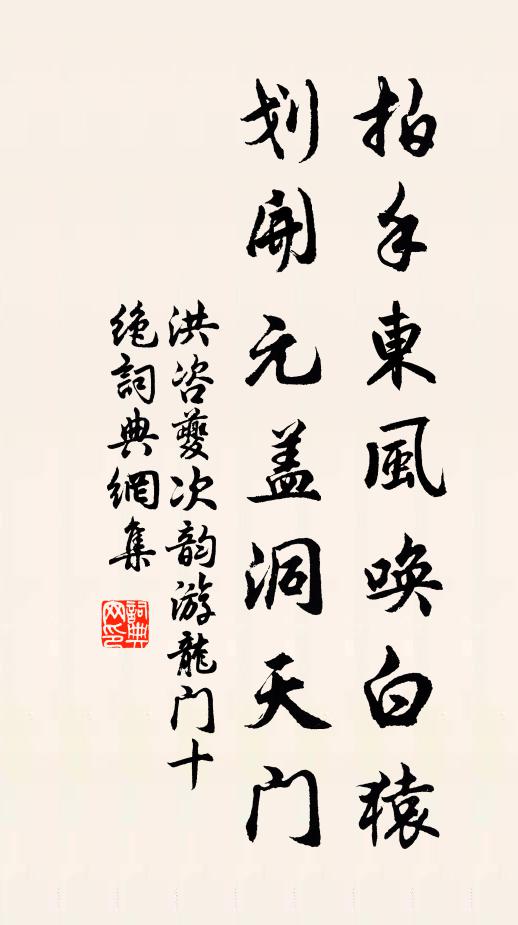 拍手東風唤白猿
划開元盖洞天门
洪咨夔次韵游龍门十
绝詞典網集
詞典网印